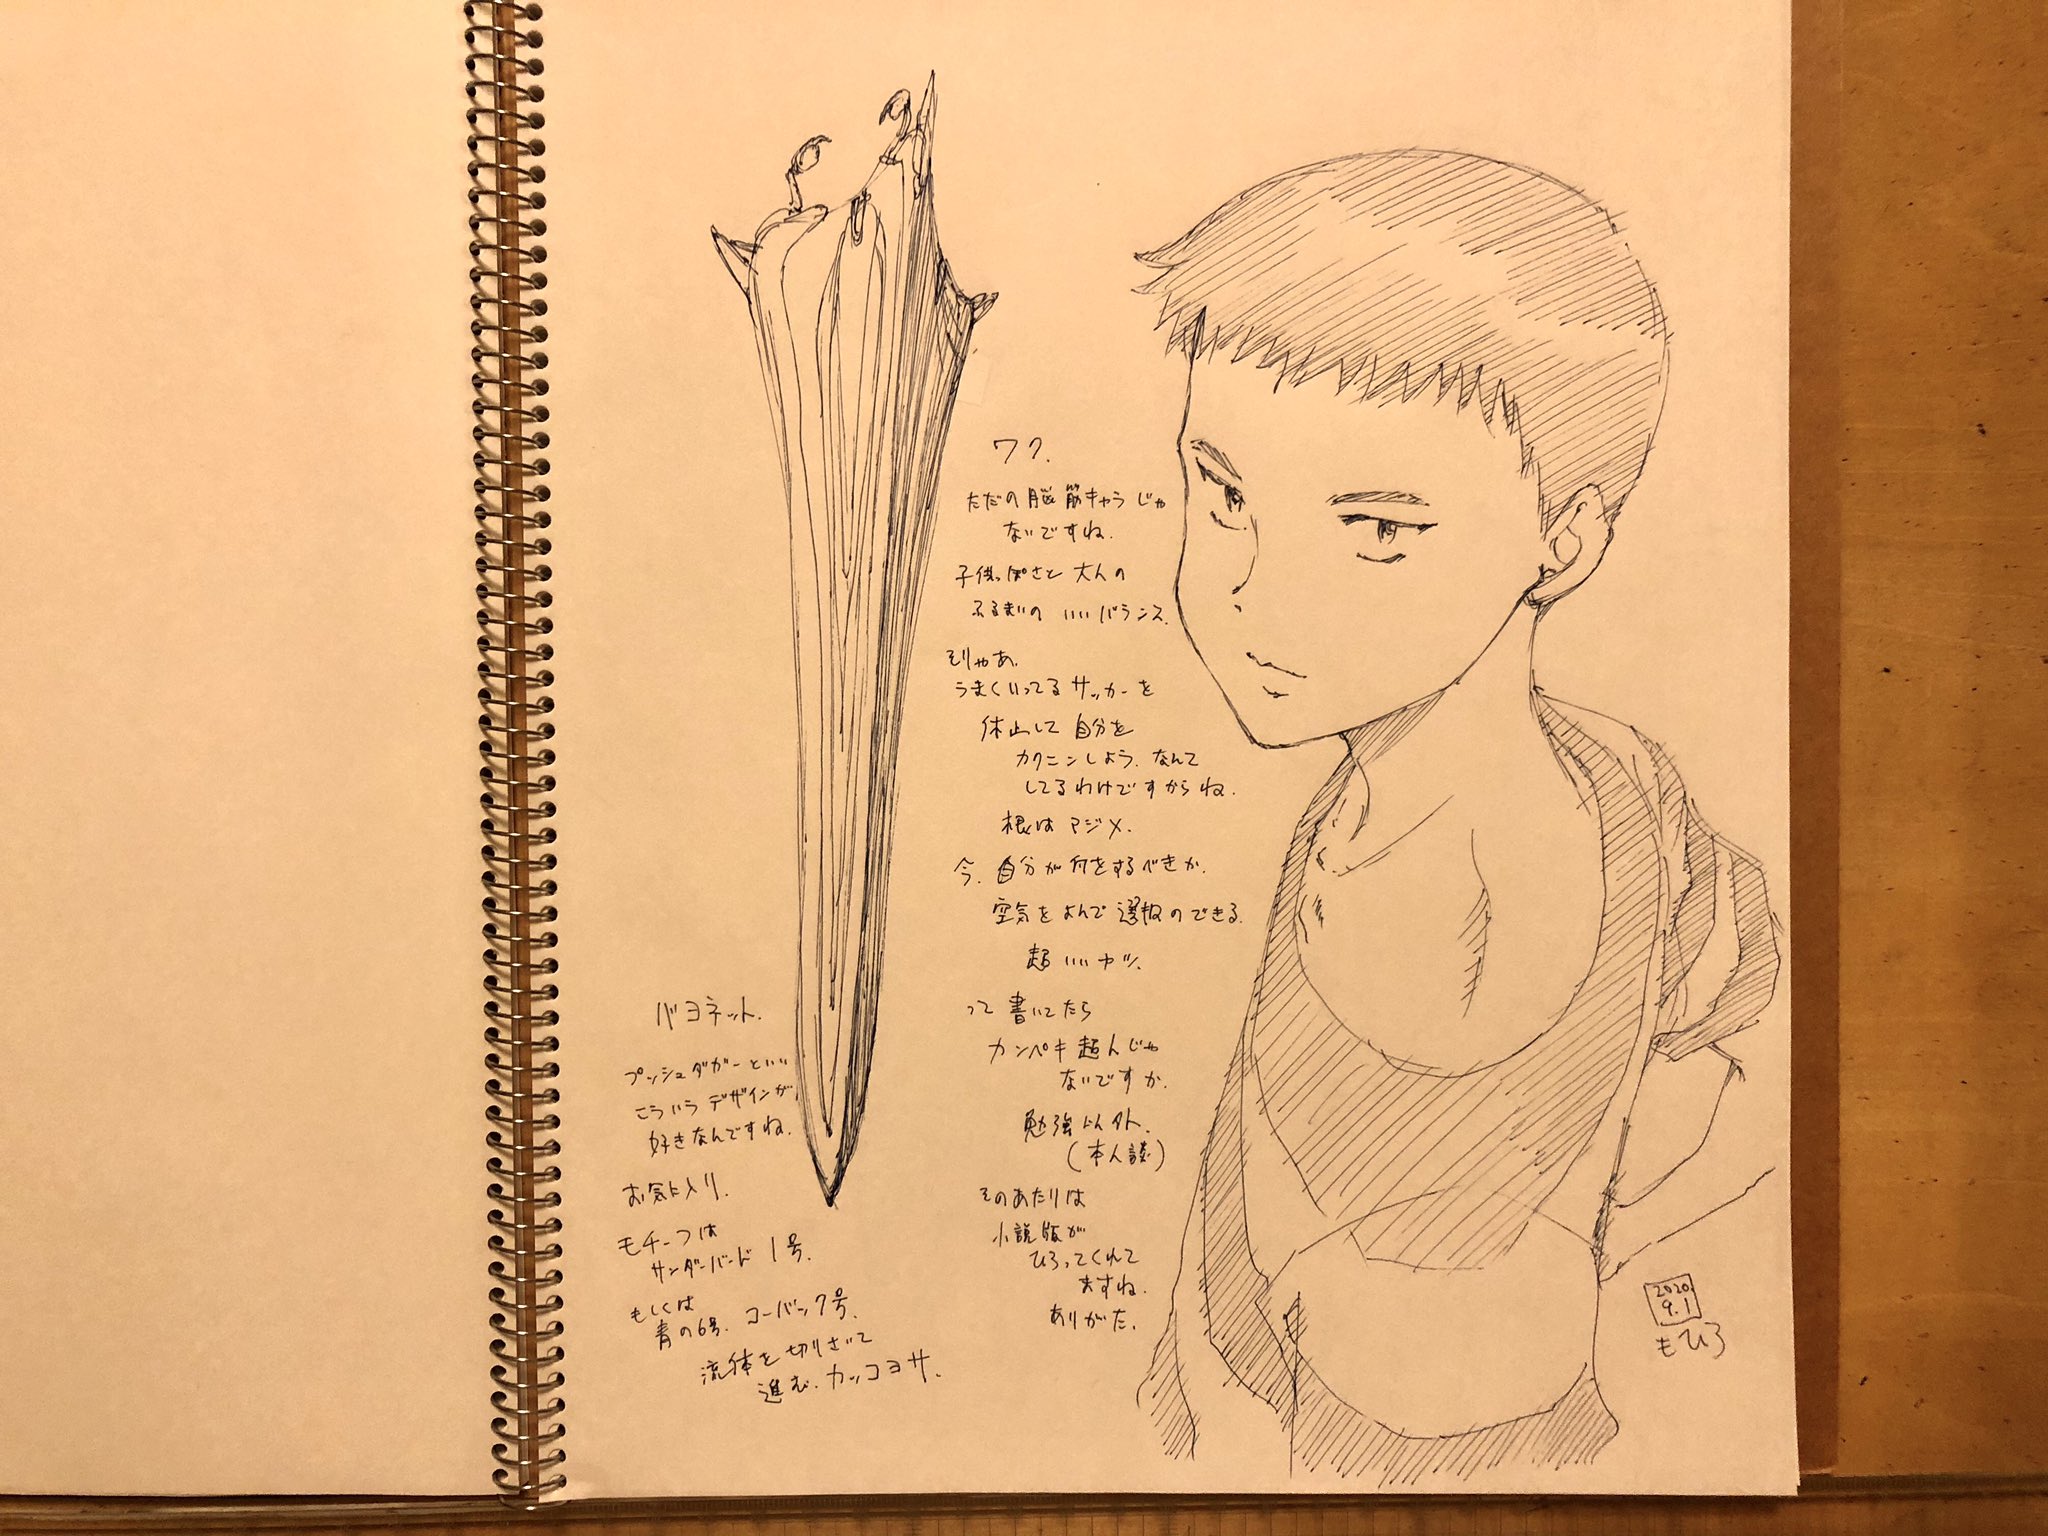 ワク.
ただの脳筋キャラじゃ
ないですね.
子供っぽさと大人の
ふるまいの いいバランス.
そりゃあ.
うまくいってるサッカーを
休止して自分を
カクニンしよう.なんて
してるわけですからね.
根はマジメ.
今.自分が何をするべきか.
空気をよんで選択のできる.
超いいヤツ.
って書いてたら
カンペキ超人じゃ
ないですか.
勉強以外.
(本人談)
そのあたりは
小説版が
ひろってくれて
ますね.
ありがた.
バヨネット.
プッシュダガーといい
こういうデザインが
好きなんですね.
お気に入り.
モチーフは
サンダーバード1号.
もしくは
青の6号.コーバック号.
流体を切りさいて
進む.カッコヨサ.
2020
9.1
もひろ